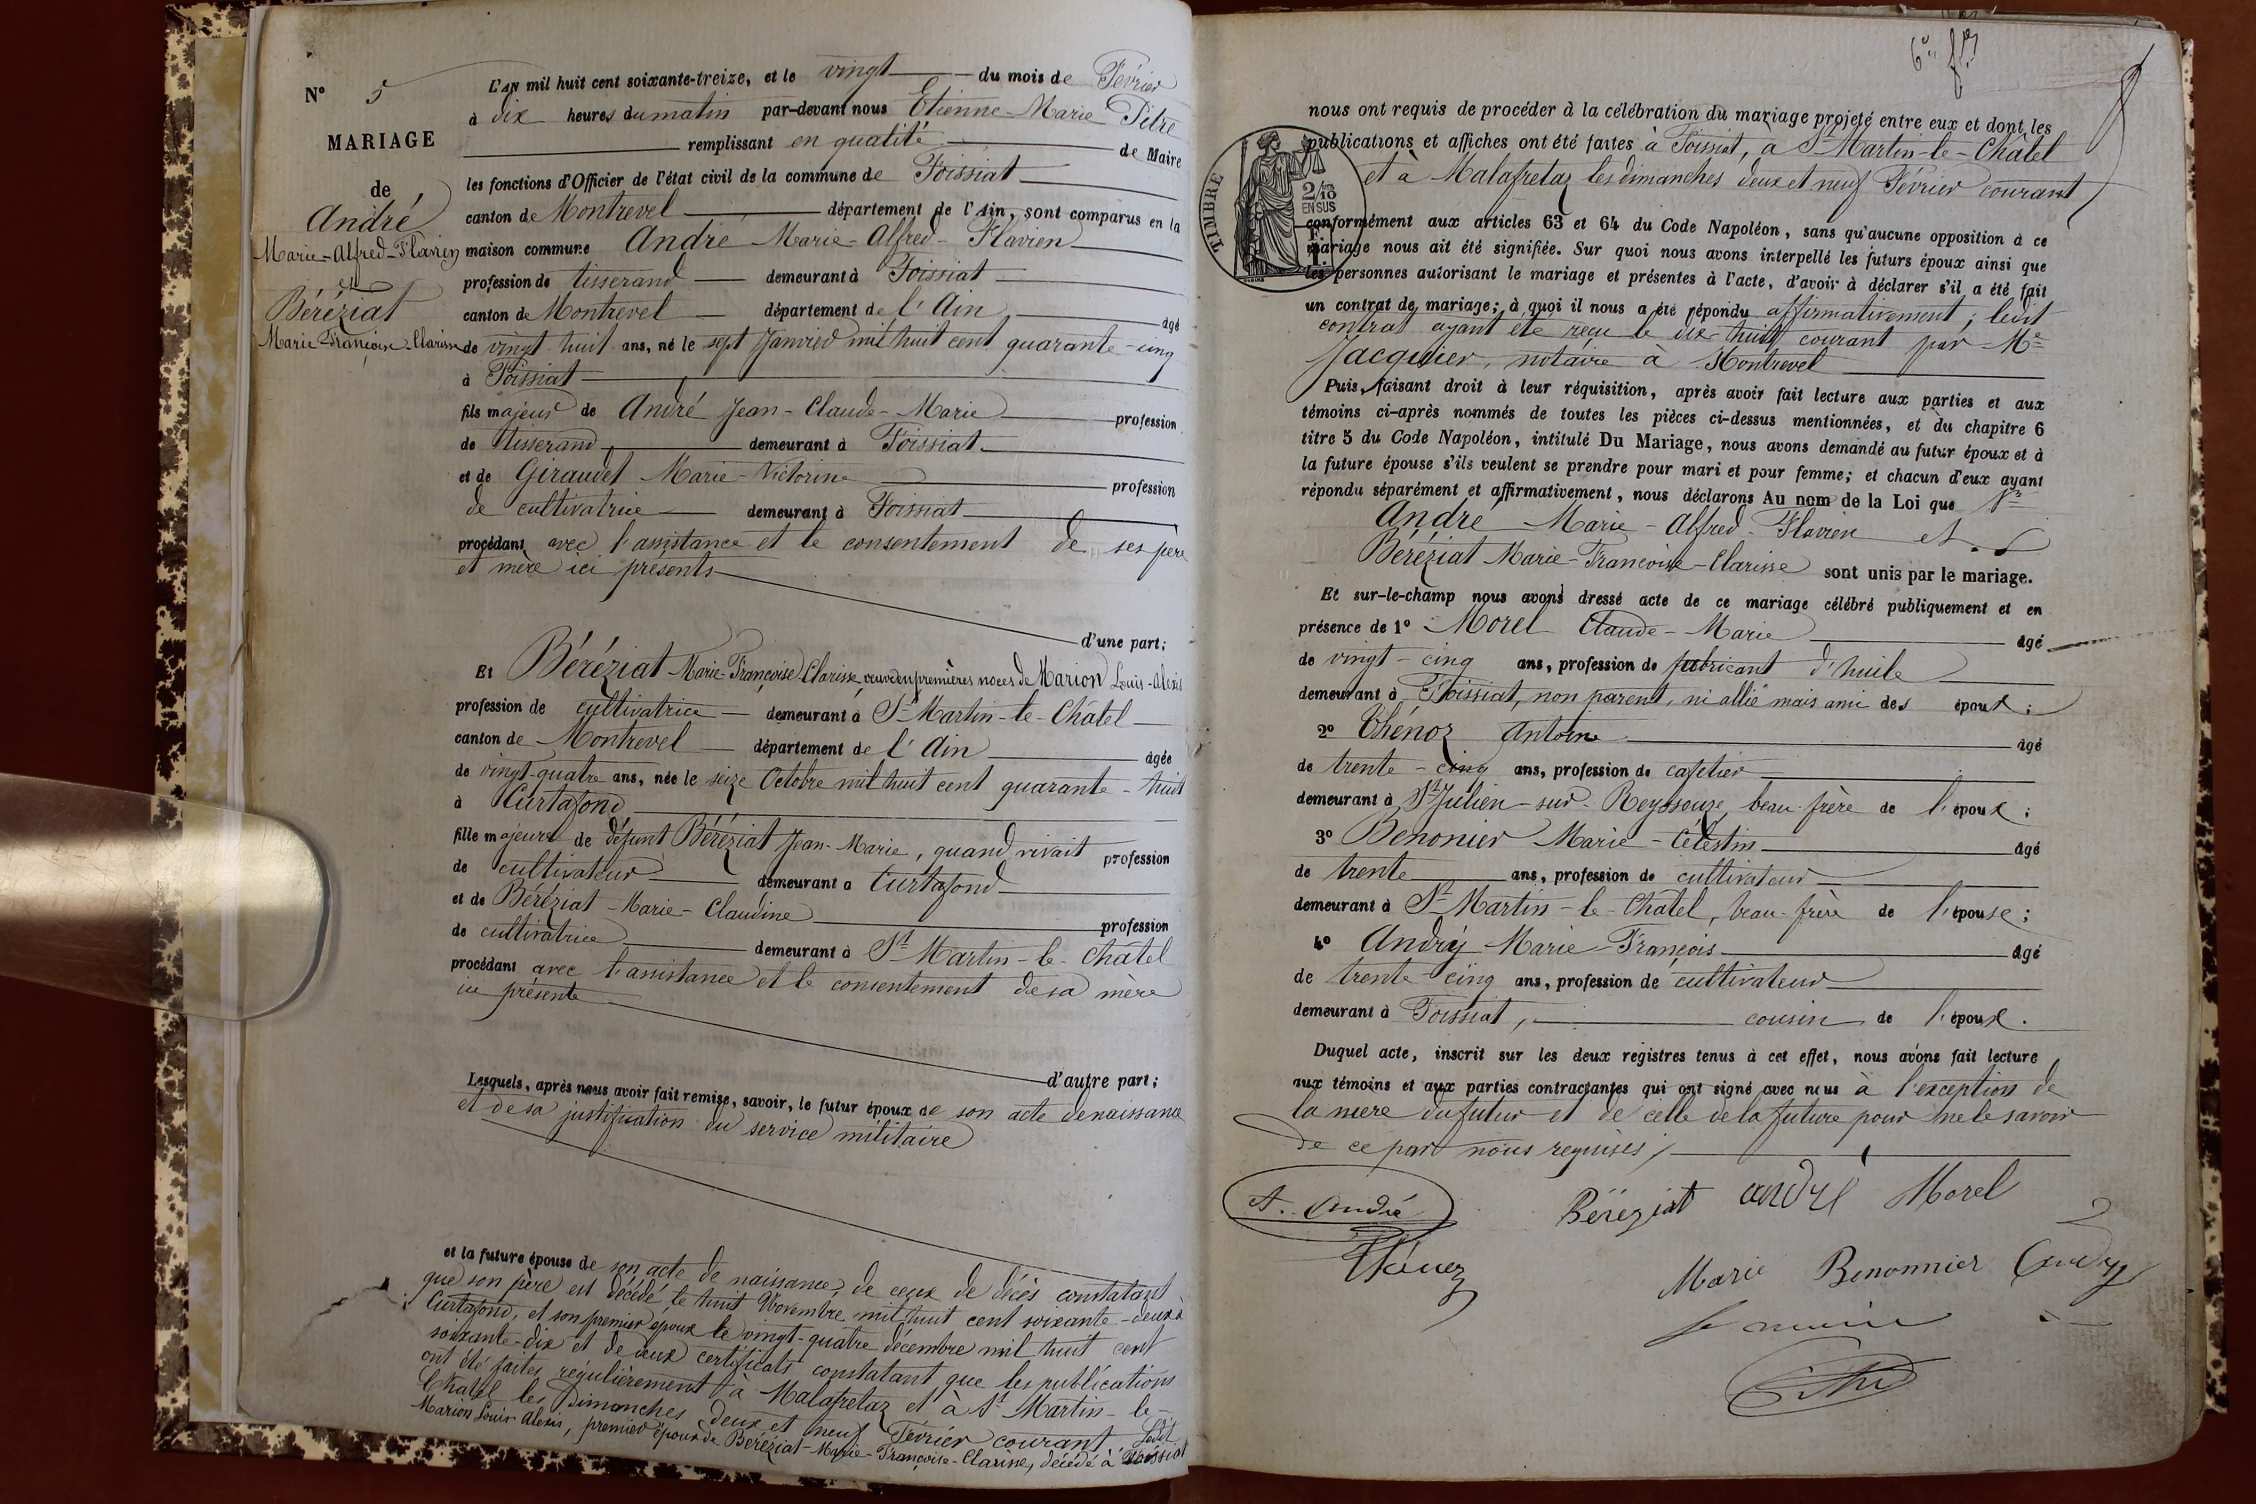 N° 5
MARIAGE
de
André
Marie-Alfred-Flavien
et
Béréziat
Marie Françoise-Clarisse
L'an mil huit cent soixante-treize, et le vingt du mois de Février
à dix heures du matin par-devant nous Etienne-Marie Pitre
remplissant en qualité de Maire
les fonctions d'Officier de l'état civil de la commune de Foissiat
canton de Montrevel département de l'Ain, sont comparus en la
maison commune André Marie-Alfred-Flavien
profession de tisserand demeurant à Foissiat
canton de Montrevel département de l'Ain âgé
de vingt-huit ans, né le sept Janvier mil huit cent quarante-cinq
à Foissiat
fils majeur de André Jean-Claude-Marie profession
de tisserand demeurant à Foissiat
et de Giraudet Marie-Victorine profession
de cultivatrice demeurant à Foissiat
procédant avec l'assistance et le consentement de ses père
et mère ici présents
d'une part;
Et Béréziat Marie-Françoise Clarisse, veuve en premières noces de Marion Louis-Alexis
profession de cultivatrice demeurant à St Martin-le-Châtel
canton de Montrevel département de l'Ain âgée
de vingt-quatre ans, née le seize Octobre mil huit cent quarante-huit
à Curtafond
fille majeure de défunt Béréziat Jean-Marie, quand vivait profession
de cultivateur demeurant à Curtafond
et de Béréziat-Marie-Claudine profession
de cultivatrice demeurant à St Martin-le-Châtel
procédant avec l'assistance et le consentement de sa mère
ici présente
d'autre part;
Lesquels, après nous avoir fait remise, savoir, le futur époux de son acte de naissance
et de sa justification du service militaire
et la future épouse de son acte de naissance, de ceux de décès constatant
que son père est décédé le huit Novembre mil huit cent soixante-deux à
Curtafond, et son premier époux le vingt-quatre décembre mil huit cent
soixante-dix et de deux certificats constatant que les publications
ont été faites régulièrement à Malafretaz et à St Martin-le-
Châtel les Dimanches deux et neuf Février courant. Ledit
Marion Louis-Alexis, premier époux de Béréziat-Marie-Françoise-Clarisse, décédé à Foissiat
6e f.
nous ont requis de procéder à la célébration du mariage projeté entre eux et dont les
publications et affiches ont été faites à Foissiat, à St Martin-le-Châtel
et à Malafretaz les dimanches deux et neuf Février courant
TIMBRE
2/10
EN SUS
conformément aux articles 63 et 64 du Code Napoléon, sans qu'aucune opposition à ce
mariage nous ait été signifiée. Sur quoi nous avons interpellé les futurs époux ainsi que
les personnes autorisant le mariage et présentes à l'acte, d'avoir à déclarer s'il a été fait
un contrat de mariage; à quoi il nous a été répondu affirmativement; ledit
contrat ayant été reçu le dix-huit courant par Me
Jacquier, notaire à Montrevel
Puis, faisant droit à leur réquisition, après avoir fait lecture aux parties et aux
témoins ci-après nommés de toutes les pièces ci-dessus mentionnées, et du chapitre 6
titre 5 du Code Napoléon, intitulé Du Mariage, nous avons demandé au futur époux et à
la future épouse s'ils veulent se prendre pour mari et pour femme; et chacun d'eux ayant
répondu séparément et affirmativement, nous déclarons Au nom de la Loi que Sr
André Marie-Alfred-Flavien et
Béréziat Marie-Françoise-Clarisse sont unis par le mariage.
Et sur-le-champ nous avons dressé acte de ce mariage célébré publiquement et en
présence de 1° Morel Claude-Marie âgé
de vingt-cinq ans, profession de fabricant d'huile
demeurant à Foissiat, non parent, ni allié mais ami des époux;
2° Thénoz Antoine âgé
de trente-cinq ans, profession de cafetier
demeurant à St Julien-sur-Reyssouze, beau-frère de l'époux;
3° Benonier Marie-Célestin âgé
de trente ans, profession de cultivateur
demeurant à St Martin-le-Châtel, beau-frère de l'épouse;
4° Andréy Marie-François âgé
de trente-cinq ans, profession de cultivateur
demeurant à Foissiat, cousin de l'époux.
Duquel acte, inscrit sur les deux registres tenus à cet effet, nous avons fait lecture
aux témoins et aux parties contractantes qui ont signé avec nous à l'exception de
la mère du futur et de celle de la future pour ne le savoir
de ce par nous requises
A. André Béréziat andré Morel
Thénoz Marie Benonnier
le maire